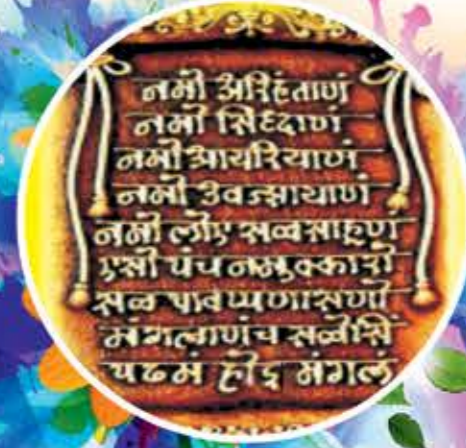 नमो अरिहंताणं
नमो सिद्दाणं
नमो आयरियाणं
नमो उवज्झायाणं
नमो लोए सव्वसाहूणं
एसो पंच नमुक्कारो
सव्व पावप्पणासणो
मंगलाणंच सव्वेसिं
पढमं होइ मंगलं